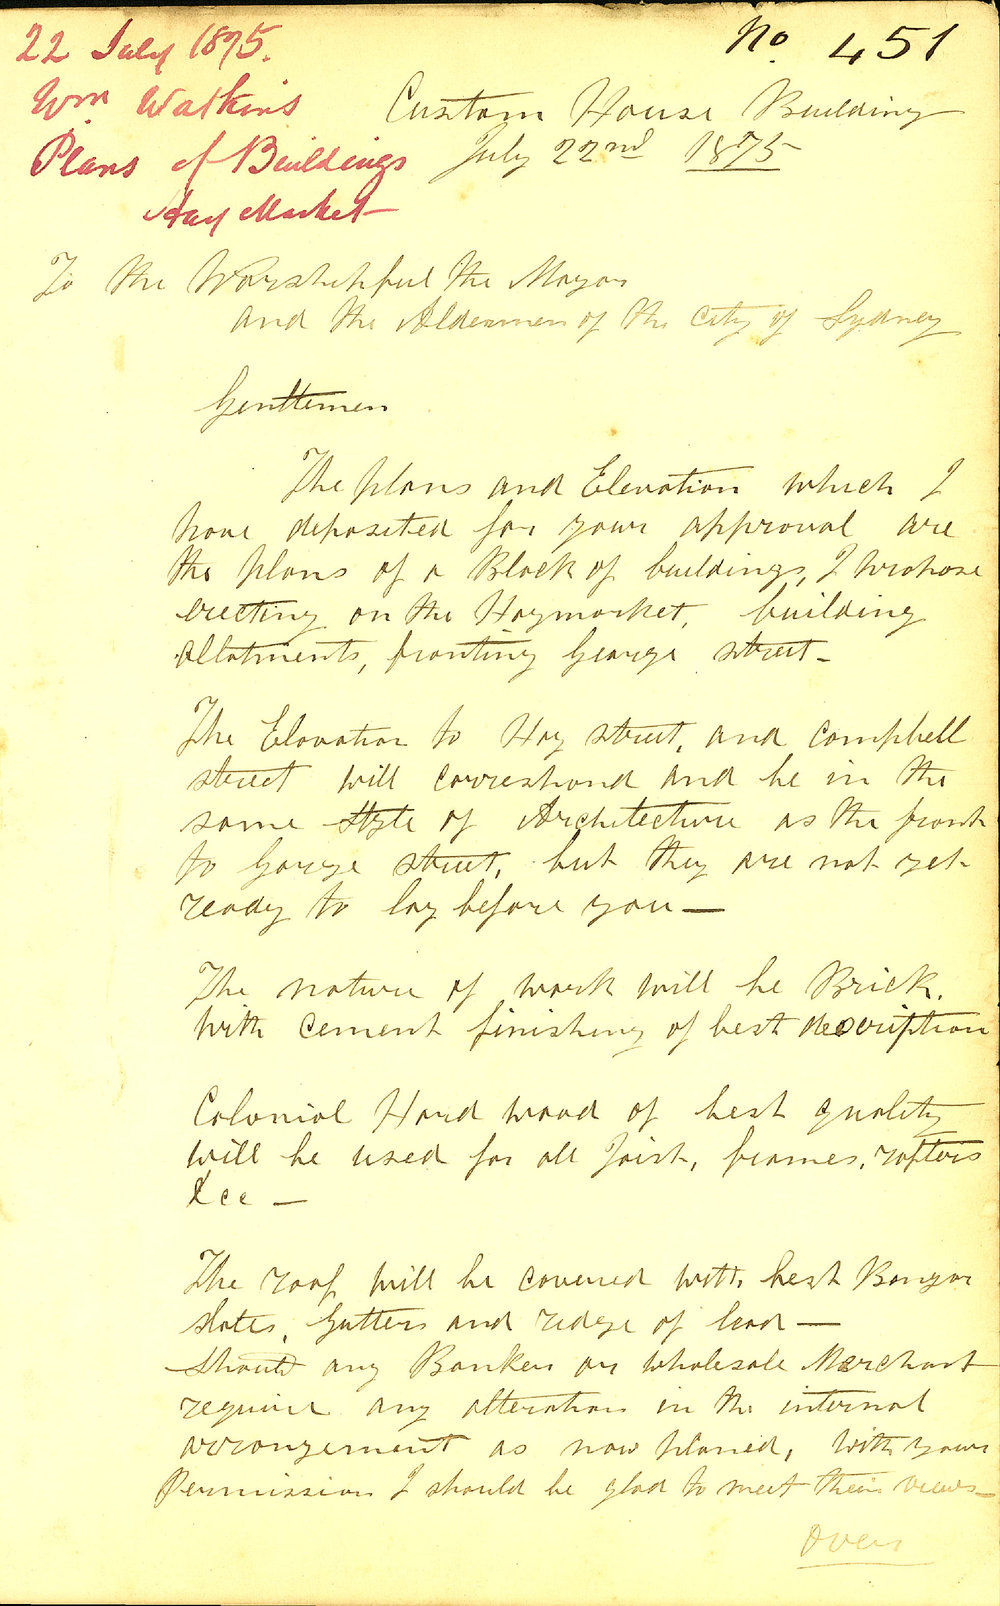 22 July 1875.
No. 451
Wm Watkins
Plans of Buildings
Hay Market
Custom House Building
July 22nd 1875
To the Worshipful the Mayor
and the Aldermen of the City of Sydney
Gentlemen
The plans and Elevation which I
have deposited for your approval are
the plans of a Block of buildings, I propose
erecting on the Haymarket, building
allotments, fronting George street -
The Elevation to Hay street, and Campbell
street will correspond and be in the
same style of Architecture as the front
to George street, but they are not yet
ready to lay before you —
The nature of work will be Brick,
with cement finishing of best description
Colonial Hard wood of best quality
will be used for all Joist, frames, rafters
&cc —
The roof will be covered with best Bangor
slates, Gutters and ridge of lead —
Should any Banker or wholesale Merchant
require any alteration in the internal
arrangement as now planed, with your
Permission I should be glad to meet their views —
Over